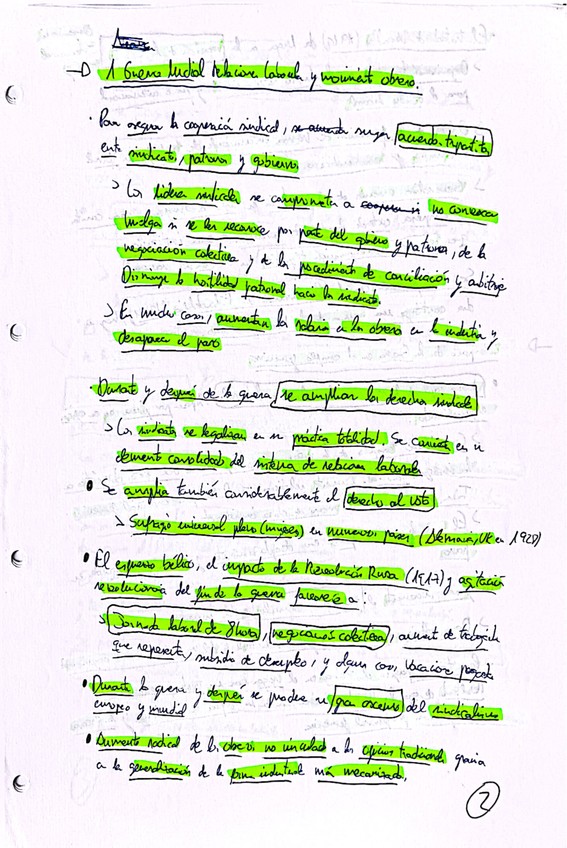 → 1 Guerra Mundial Relaciones laborales y movimiento obrero.
· Para asegurar la cooperación sindical, surgen acuerdos tripartitos
entre sindicatos, patronos y gobiernos
> Los líderes sindicales se comprometen a no convocar
huelga si se les reconoce por parte del gobierno y patronos, de la
negociación colectiva y de los procedimientos de conciliación y arbitraje
Disminuye la hostilidad patronal hacia los sindicatos.
> En muchos casos, aumentan los salarios a los obreros en la industria y
desaparece el paro
· Durante y después de la guerra se amplían los derechos sindicales
> Los sindicatos se legalizan en su práctica totalidad. Se convierte en un
elemento consolidado del sistema de relaciones laborales
· Se amplía también considerablemente el derecho al voto
> Sufragio universal pleno (mujeres) en numerosos países (Alemania, UK en 1928)
· El esfuerzo bélico, el impacto de la Revolución Rusa (1917) y agitación
revolucionaria del fin de la guerra favorece a:
> Jornada laboral de 8 horas, negociaciones colectivas, aumento de trabajadores
que representa, subsidio de desempleo, y algunos casos, vacaciones pagadas
· Durante la guerra y después se produce un gran ascenso del sindicalismo
europeo y mundial
· Aumento radical de los obreros no vinculados a los oficios tradicionales gracias
a la generalización de la industrial más mecanizada.
2